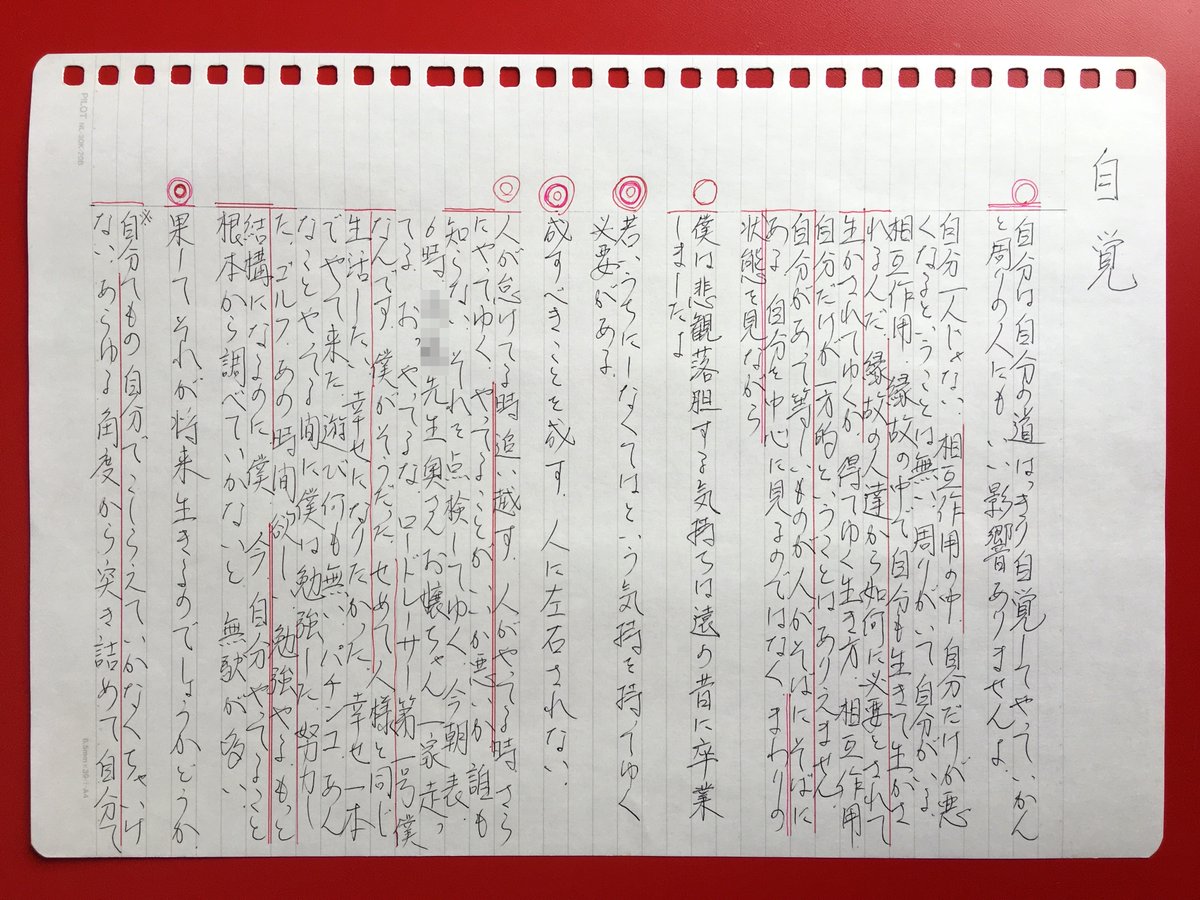 自覚
自分は自分の道はっきり自覚してやっていかん
と周りの人にもいい影響ありませんよ.
自分一人じゃない. 相互作用の中. 自分だけが悪
くなるということは無い. 周りがいて自分がいる.
相互作用. 縁故の中で自分も生きて生かさ
れるんだ. 縁故の人達から如何に必要とされて
生かされてゆくか 得てゆく生き方. 相互作用
自分だけが一方的ということはありえません.
自分があって等しいものが人がそばにそばに
ある. 自分を中心に見るのではなく. まわりの
状態を見ながら
僕は悲観落胆する気持ちは遠の昔に卒業
しましたよ
若いうちにしなくてはという気持を持ってゆく
必要がある.
成すべきことを成す. 人に左右されない.
人が怠けてる時追い越す. 人がやってる時さら
にやってゆく. やってることがいいか悪いか誰も
知らない. それを点検してゆく. 今朝表.
6時. 先生奥さんお嬢ちゃん一家走っ
てる. おっ. やってるな. ロードレーサー第一号僕
なんです. 僕がそうだった. せめて人様と同じ
生活したい. 幸せになりたかった. 幸せ一本
でやって来た. 遊び何も無い. パチンコ. あん
なことやってる間に僕は勉強した. 努力し
た. ゴルフ. あの時間欲しい. 勉強やるもっと
結構になるのに 僕. 今. 自分やってること
根本から調べていかないと 無駄が多い.
果してそれが将来生きるのでしょうかどうか
※自分てもの自分でこしらえていかなくちゃいけ
ない. あらゆる角度から突き詰めて自分て
PILOT
0.5mm×39-1-A4